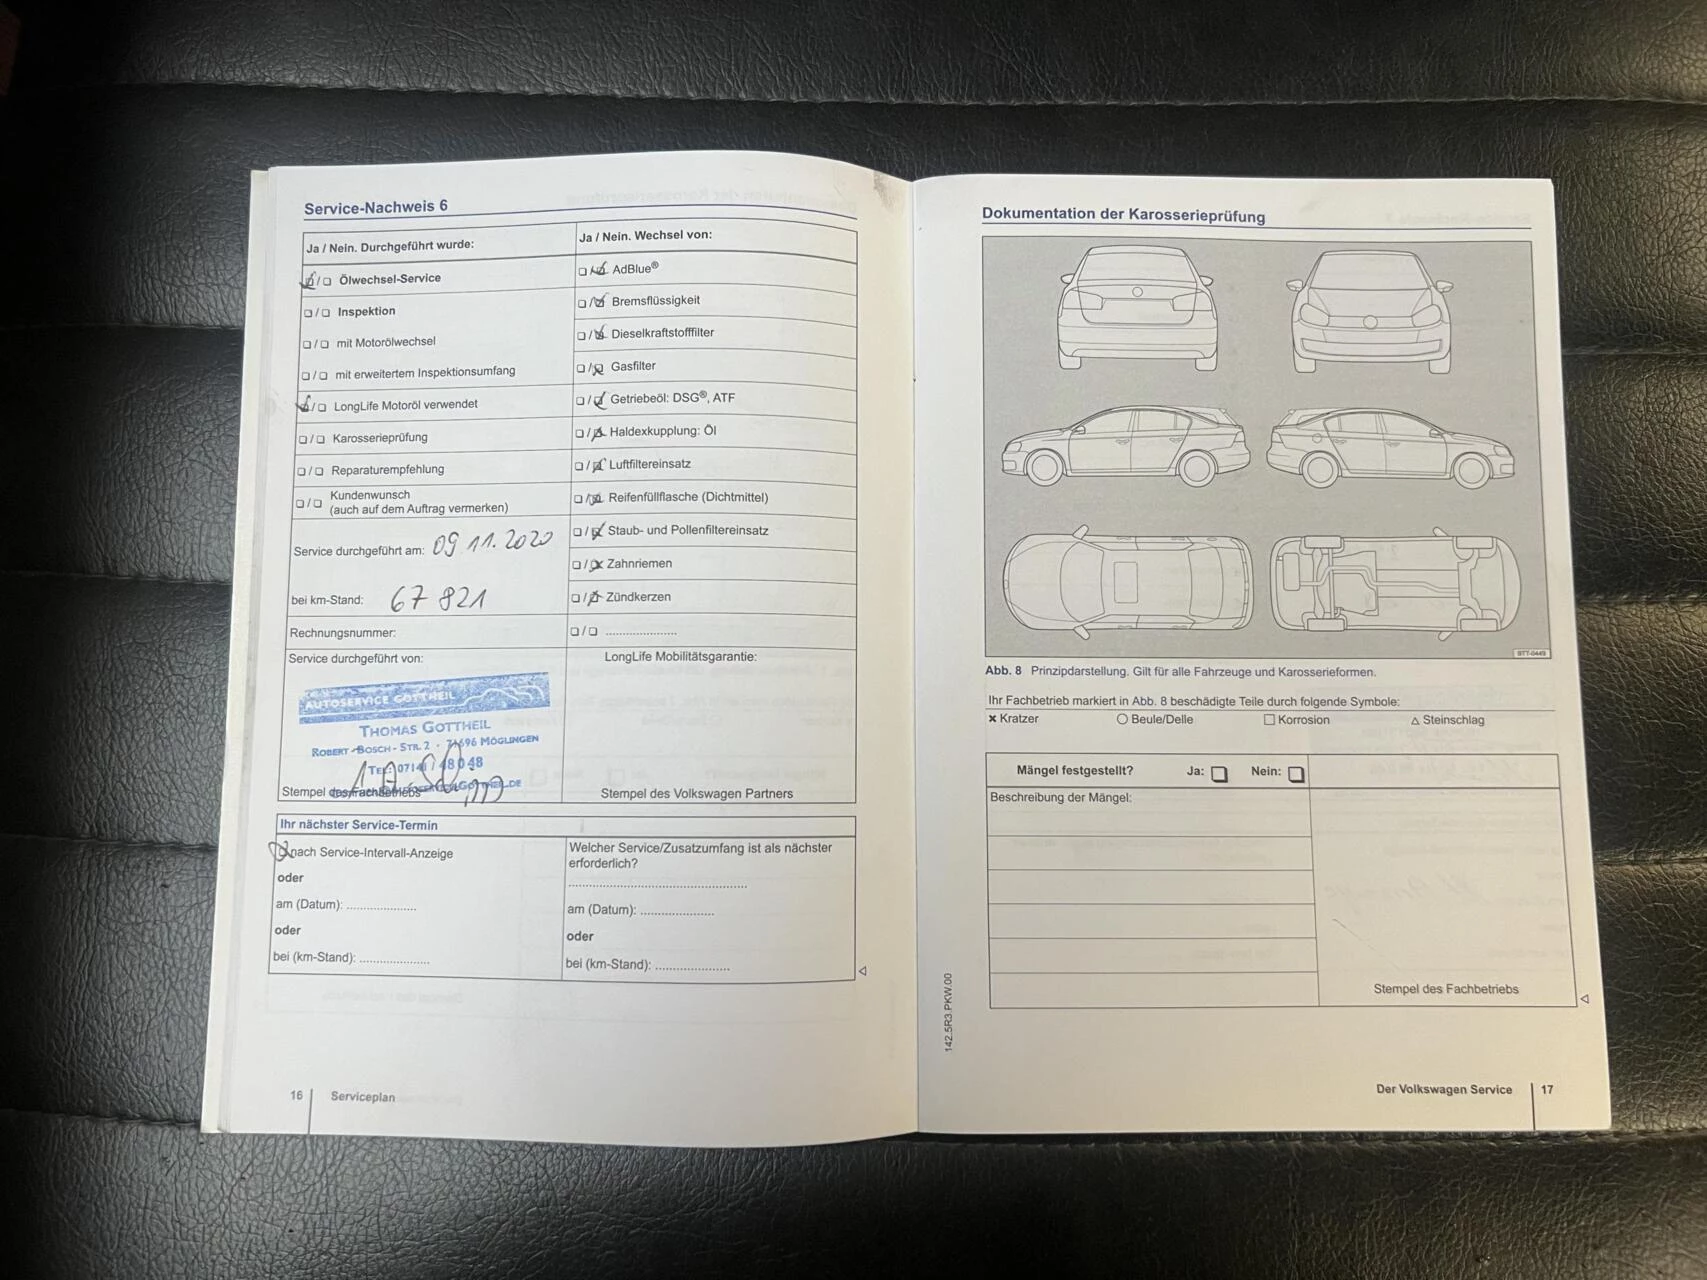 Service-Nachweis 6
Ja / Nein. Durchgeführt wurde:
Ölwechsel-Service
Inspektion
mit Motorölwechsel
mit erweitertem Inspektionsumfang
LongLife Motoröl verwendet
Karosserieprüfung
Reparaturempfehlung
Kundenwunsch
(auch auf dem Auftrag vermerken)
Service durchgeführt am: 09 11. 2020
bei km-Stand: 67 821
Rechnungsnummer:
Service durchgeführt von:
AUTOSERVICE GOTTHEIL
THOMAS GOTTHEIL
ROBERT-BOSCH-STR. 2 · 71696 MÖGLINGEN
TEL: 07141 / 48048
Stempel des Fachbetriebs
Ja / Nein. Wechsel von:
AdBlue®
Bremsflüssigkeit
Dieselkraftstofffilter
Gasfilter
Getriebeöl: DSG®, ATF
Haldexkupplung: Öl
Luftfiltereinsatz
Reifenfüllflasche (Dichtmittel)
Staub- und Pollenfiltereinsatz
Zahnriemen
Zündkerzen
LongLife Mobilitätsgarantie:
Stempel des Volkswagen Partners
Ihr nächster Service-Termin
nach Service-Intervall-Anzeige
oder
am (Datum): ......................
oder
bei (km-Stand): ......................
Welcher Service/Zusatzumfang ist als nächster
erforderlich?
am (Datum): ......................
oder
bei (km-Stand): ......................
16 Serviceplan
Dokumentation der Karosserieprüfung
BTT-0449
Abb. 8 Prinzipdarstellung. Gilt für alle Fahrzeuge und Karosserieformen.
Ihr Fachbetrieb markiert in Abb. 8 beschädigte Teile durch folgende Symbole:
× Kratzer ○ Beule/Delle □ Korrosion △ Steinschlag
Mängel festgestellt? Ja: Nein:
Beschreibung der Mängel:
Stempel des Fachbetriebs
142.5R3.PKW.00
Der Volkswagen Service 17